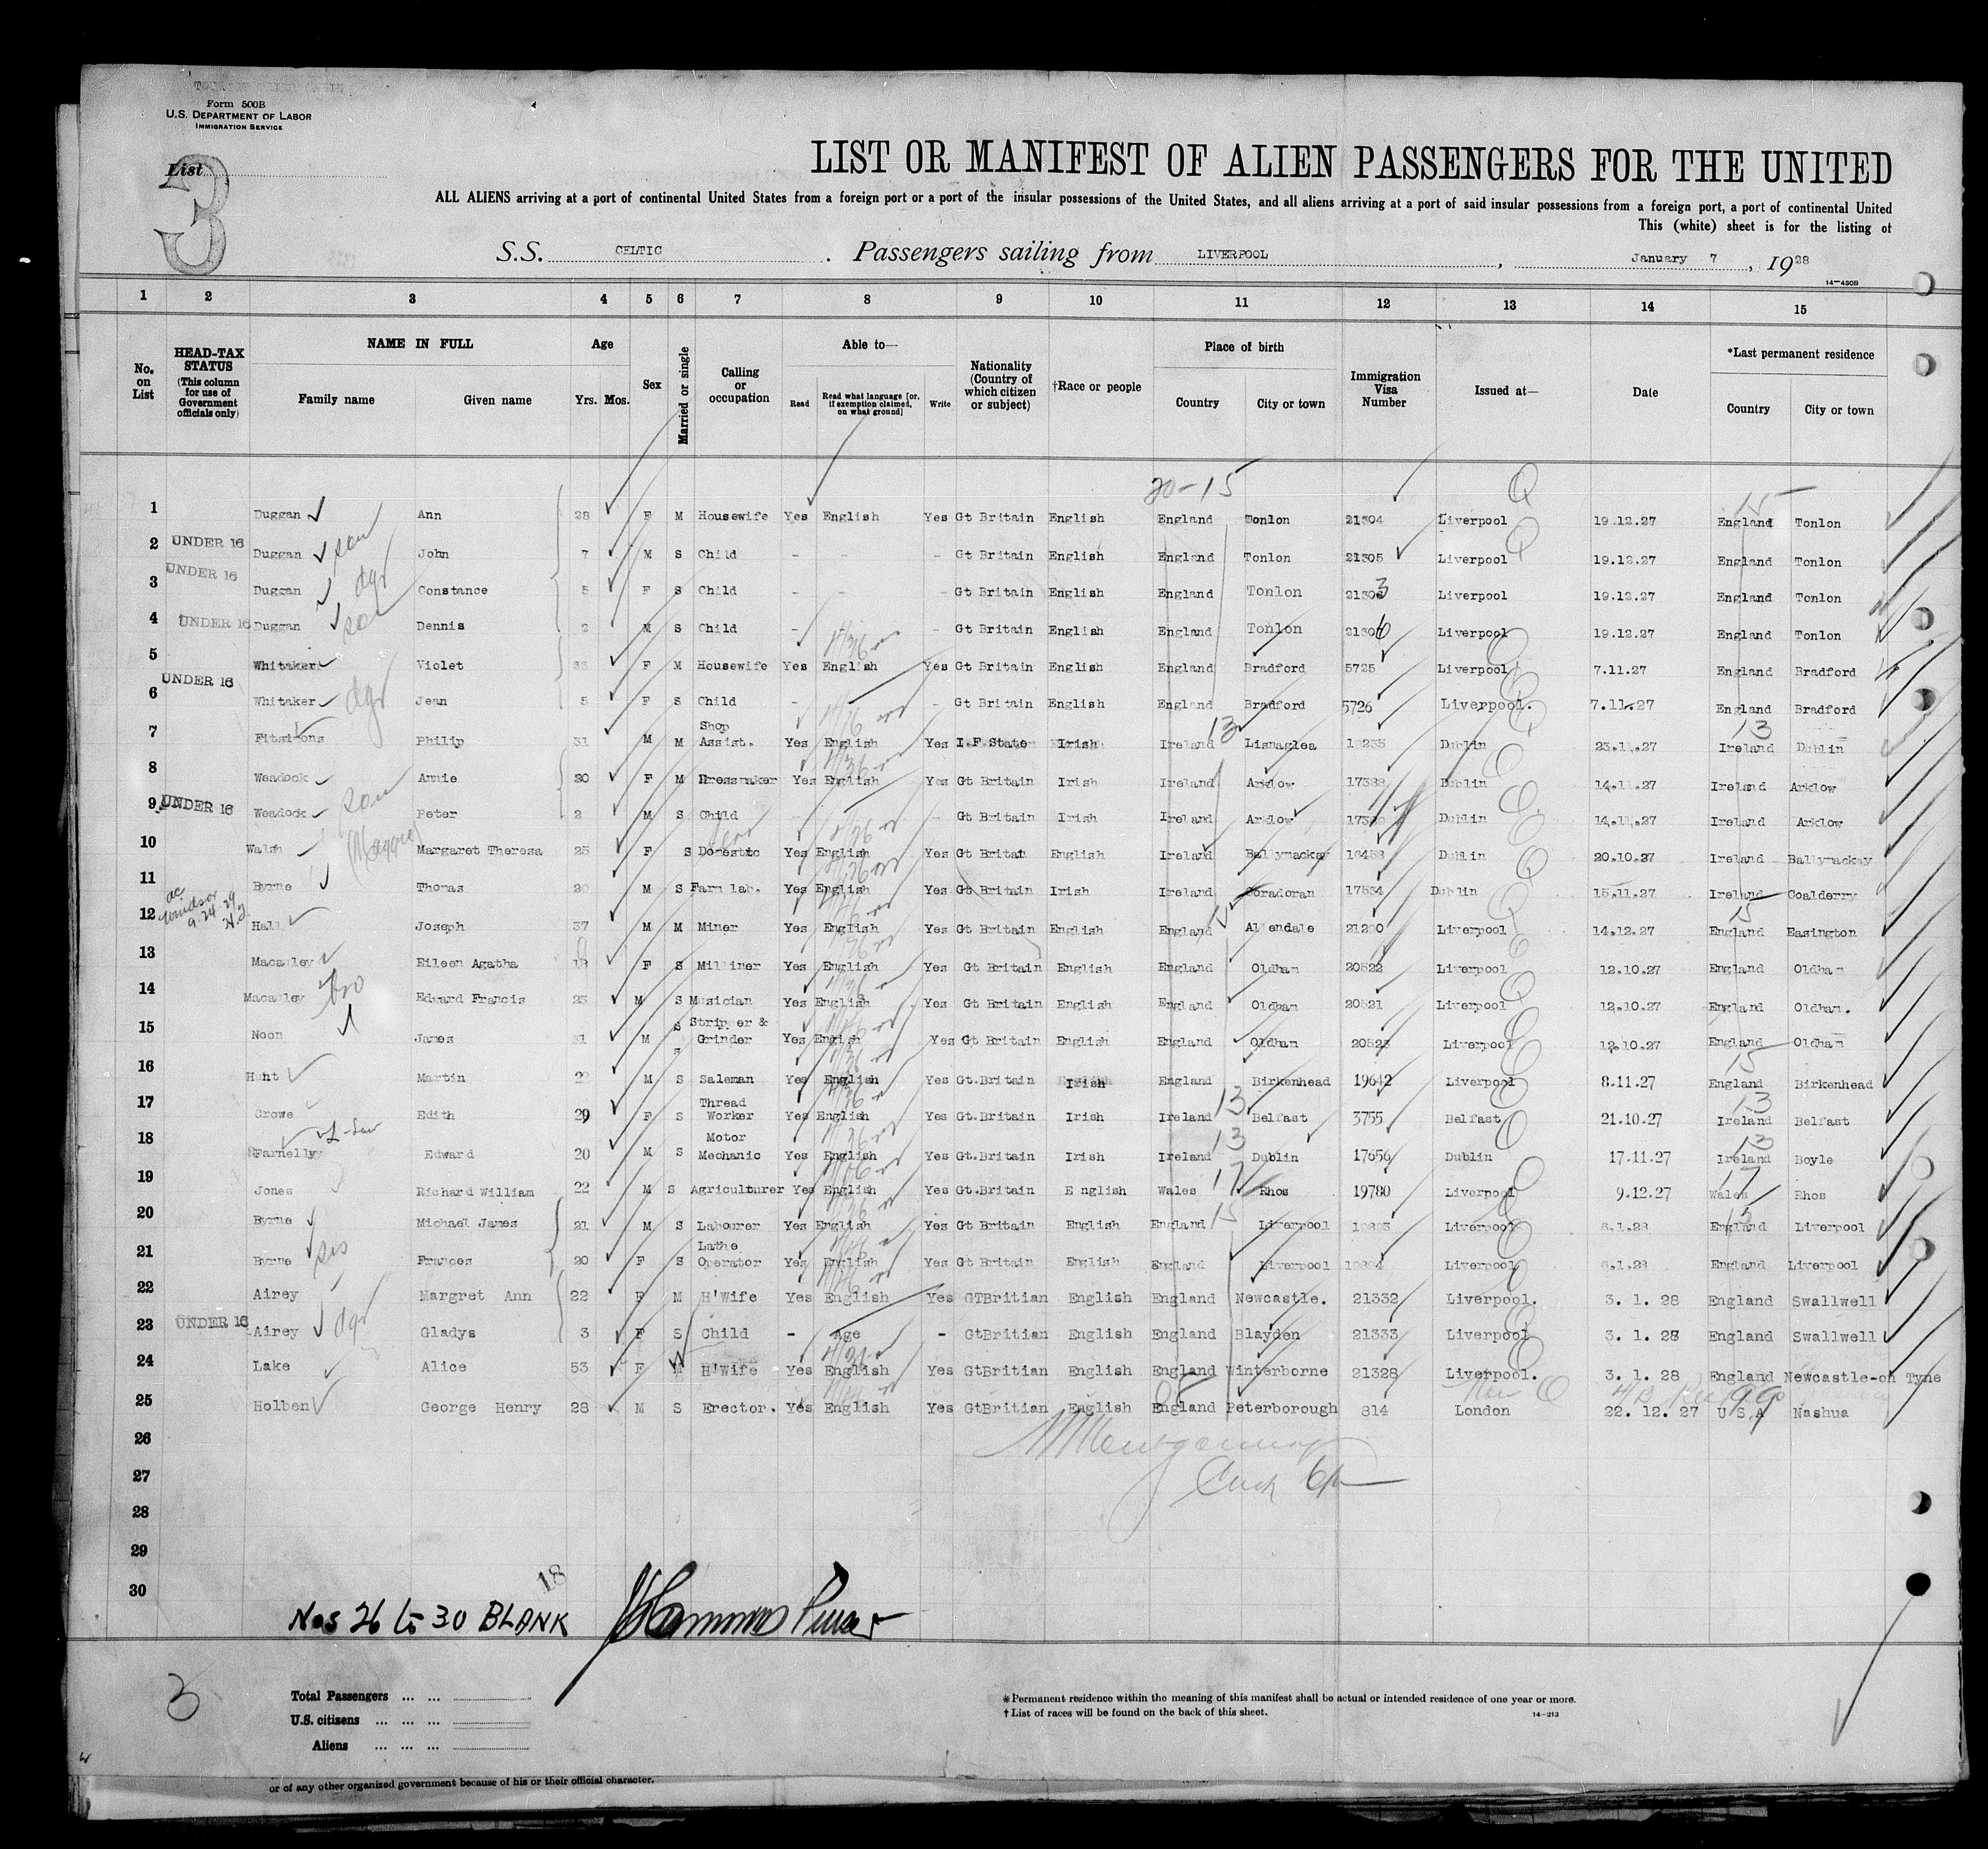 Form 500B
U.S. DEPARTMENT OF LABOR
IMMIGRATION SERVICE
List
3
LIST OR MANIFEST OF ALIEN PASSENGERS FOR THE UNITED
ALL ALIENS arriving at a port of continental United States from a foreign port or a port of the insular possessions of the United States, and all aliens arriving at a port of said insular possessions from a foreign port, a port of continental United
This (white) sheet is for the listing of
S.S. CELTIC . Passengers sailing from LIVERPOOL , January 7 , 1928
14—430B
1 2 3 4 5 6 7 8 9 10 11 12 13 14 15
No. on List
HEAD-TAX STATUS (This column for use of Government officials only)
NAME IN FULL Family name Given name
Age Yrs. Mos.
Sex
Married or single
Calling or occupation
Able to— Read Read what language [or, if exemption claimed, on what ground] Write
Nationality (Country of which citizen or subject)
†Race or people
Place of birth Country City or town
Immigration Visa Number
Issued at—
Date
*Last permanent residence Country City or town
20-15 15
1 Duggan Ann 28 F M Housewife Yes English Yes Gt Britain English England Tonlon 21304 Liverpool 19.12.27 England Tonlon
2 UNDER 16 Duggan son John 7 M S Child - - - Gt Britain English England Tonlon 21305 Liverpool 19.12.27 England Tonlon
3 UNDER 16 Duggan dgr Constance 5 F S Child - - - Gt Britain English England Tonlon 21303 Liverpool 19.12.27 England Tonlon
4 UNDER 16 Duggan son Dennis 2 M S Child - - Gt Britain English England Tonlon 21306 Liverpool 19.12.27 England Tonlon
5 Whitaker Violet 33 F M Housewife Yes English Yes Gt Britain English England Bradford 5725 Liverpool 7.11.27 England Bradford
6 UNDER 16 Whitaker dgr Jean 5 F S Child - - Gt Britain English England Bradford 5726 Liverpool. 7.11.27 England Bradford
7 Fitsimons Philip 31 M M Shop Assist. Yes English Yes I.F.State Irish Ireland 13 Lisnaglea Dublin 23.11.27 Ireland 13 Dublin
8 Weadock Annie 30 F M Dressmaker Yes English Yes Gt Britain Irish Ireland Arklow 17388 Dublin 14.11.27 Ireland Arklow
9 UNDER 16 Weadock son Peter 2 M S Child Gt Britain Irish Ireland Arklow Dublin 14.11.27 Ireland Arklow
10 Walsh (Maggie) Margaret Theresa 25 F S Domestic Yes English Yes Gt Britain English Ireland Ballymackey 16458 Dublin 20.10.27 Ireland Ballymackay
11 Byrne Thomas 20 M S Farm lab. Yes English Yes Gt Britain Irish Ireland 17534 Dublin 15.11.27 Ireland Coalderry
12 Windsor 9-24-29 Hall Joseph 37 M M Miner Yes English Yes Gt Britain English England 15 Allendale 21290 Liverpool 14.12.27 England 15 Easington
13 Macauley Eileen Agatha 19 F S Milliner Yes English Yes Gt Britain English England Oldham 20522 Liverpool 12.10.27 England Oldham
14 Macauley bro Edward Francis 23 M S Musician Yes English Yes Gt Britain English England Oldham 20521 Liverpool 12.10.27 England Oldham.
15 Noon James 31 M S Stripper & Grinder Yes English Yes Gt Britain English England Oldham 20523 Liverpool 12.10.27 England Oldham
16 Hunt Martin 22 M S Saleman Yes English Yes Gt.Britain Irish England Birkenhead 19642 Liverpool 8.11.27 England 15 Birkenhead
17 Crowe Edith 29 F S Thread Worker Yes English Yes Gt.Britain Irish Ireland 13 Belfast 3755 Belfast 21.10.27 Ireland 13 Belfast
18 Farnelly Edward 20 M S Motor Mechanic Yes English Yes Gt.Britain Irish Ireland 13 Dublin 17656 Dublin 17.11.27 Ireland 13 Boyle
19 Jones Richard William 22 M S Agriculturer Yes English Yes Gt.Britain E nglish Wales 17 Rhos 19780 Liverpool 9.12.27 Wales 17 Rhos
20 Byrne Michael James 21 M S Labourer Yes English Yes Gt Britain English England 15 Liverpool Liverpool 6.1.28 England 15 Liverpool
21 Byrne sis Frances 20 F S Lathe Operator Yes English Yes Gt Britain English England Liverpool Liverpool 6.1.28 England Liverpool
22 Airey Margret Ann 22 F M H'Wife Yes English Yes GTBritian English England Newcastle. 21332 Liverpool. 3. 1. 28 England Swallwell
23 UNDER 16 Airey dgr Gladys 3 F S Child - Age - GtBritian English England Blayden 21333 Liverpool 3. 1. 28 England Swallwell
24 Lake Alice 53 F M H'Wife Yes English Yes GtBritian English England Winterborne 21328 Liverpool. 3. 1. 28 England Newcastle-on Tyne
25 Holben George Henry 28 M S Erector. Yes English Yes GtBritian English England Peterborough 814 London 22. 12. 27 U S A 99 Nashua
26
27
28
29
30
18
Nos 26 to 30 BLANK Purser
3
Total Passengers ... ...
U.S. citizens ... ... ...
Aliens ... ... ...
* Permanent residence within the meaning of this manifest shall be actual or intended residence of one year or more.
† List of races will be found on the back of this sheet.
14—213
or of any other organized government because of his or their official character.